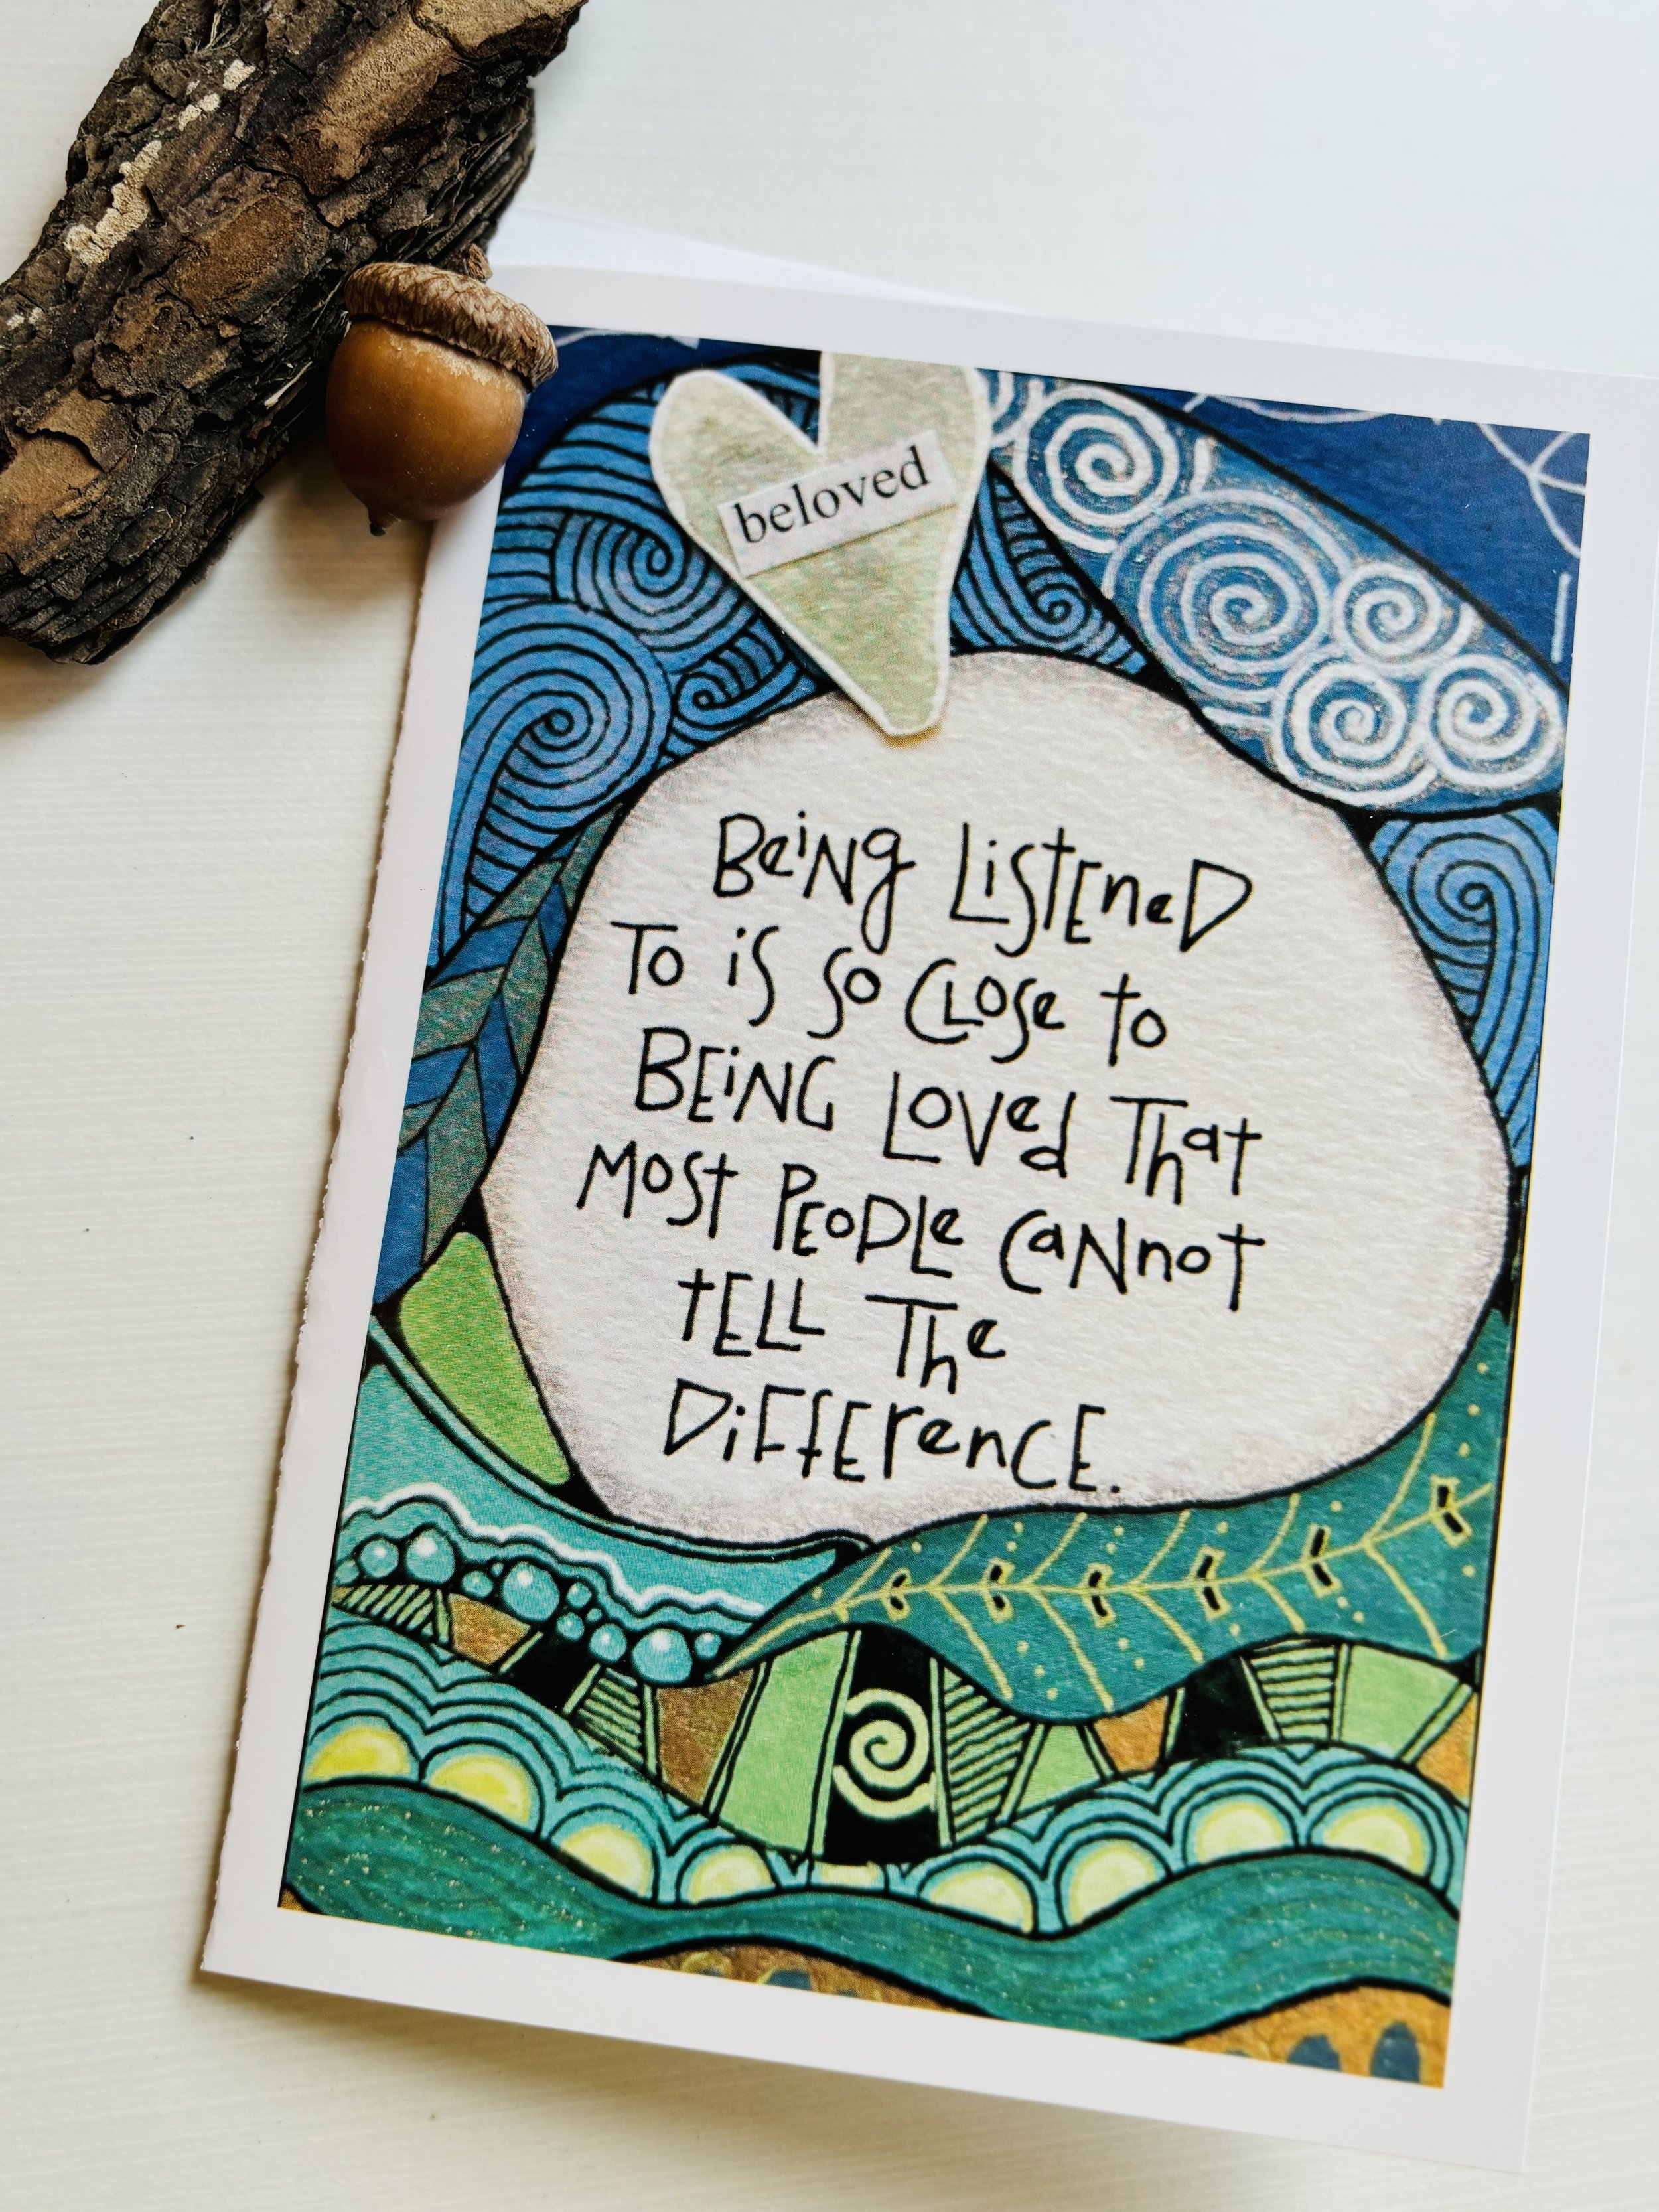 beloved
BeiNg LiStEneD
To iS So CLOSe to
BEiNG LoVed That
MoSt PEoPLe CaNnoT
tELL The
DiFfErenCE.